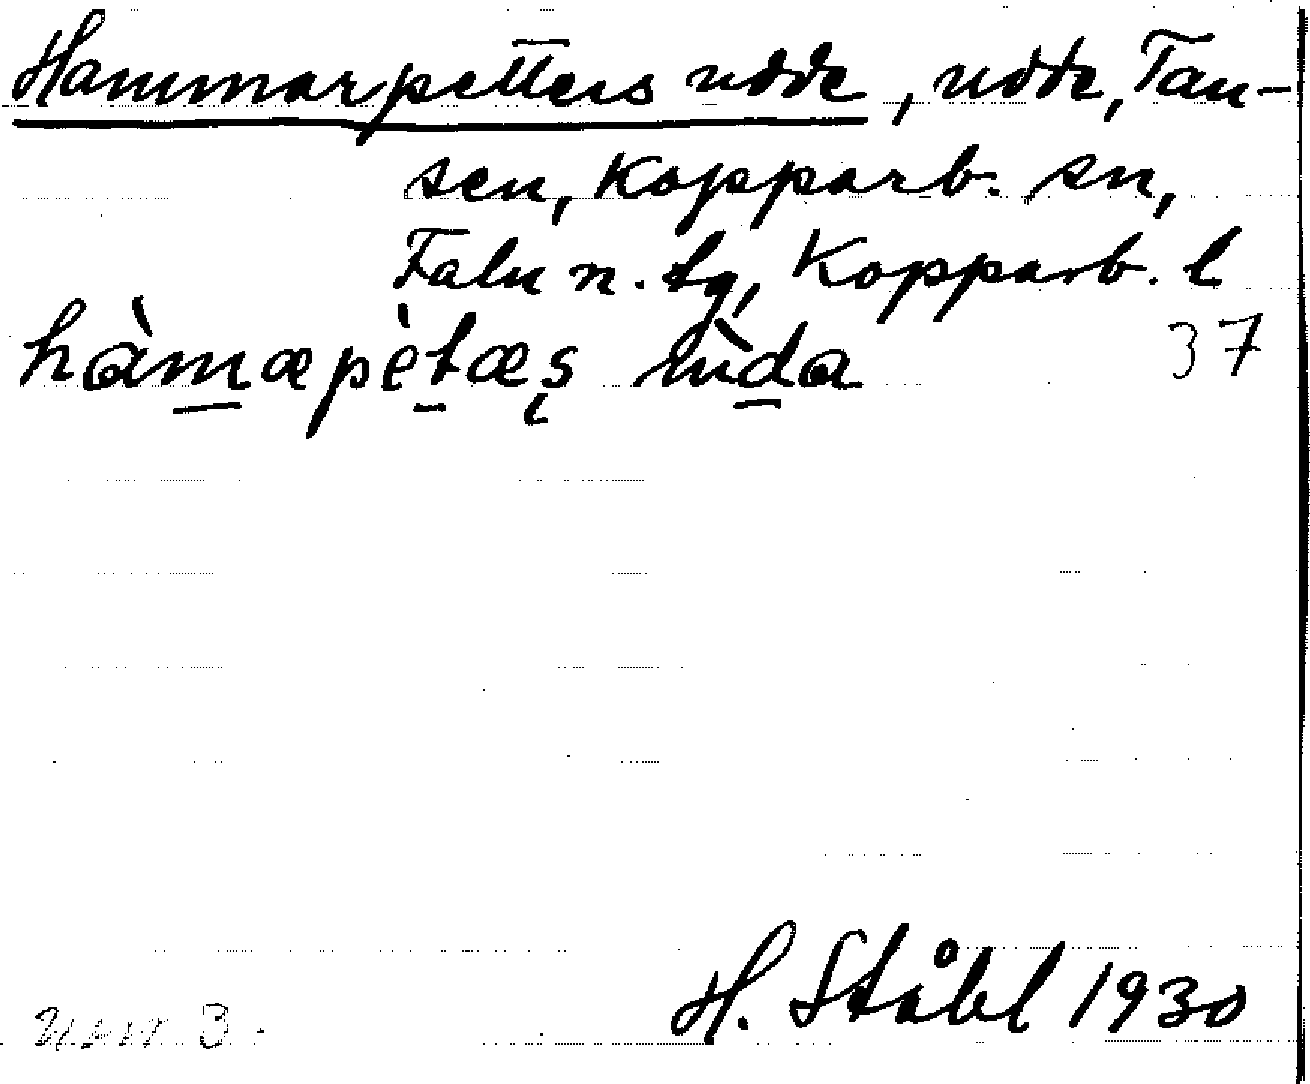 Hammarpetters udde, udde, Tan-
sen, Kopparb. sn,
Falu n. tg, Kopparb. l
hàmæpètæs ùda 37
H. Ståhl 1930